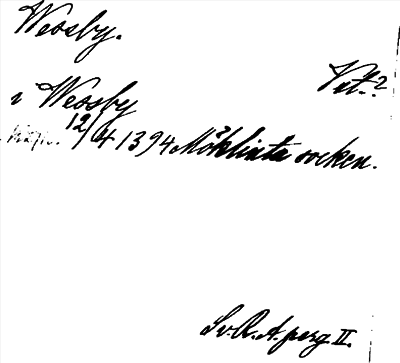 Wessby.
Vet.?
i Wessby
12/4 1394 Möklinta socken.
Sv. R. A. perg II.